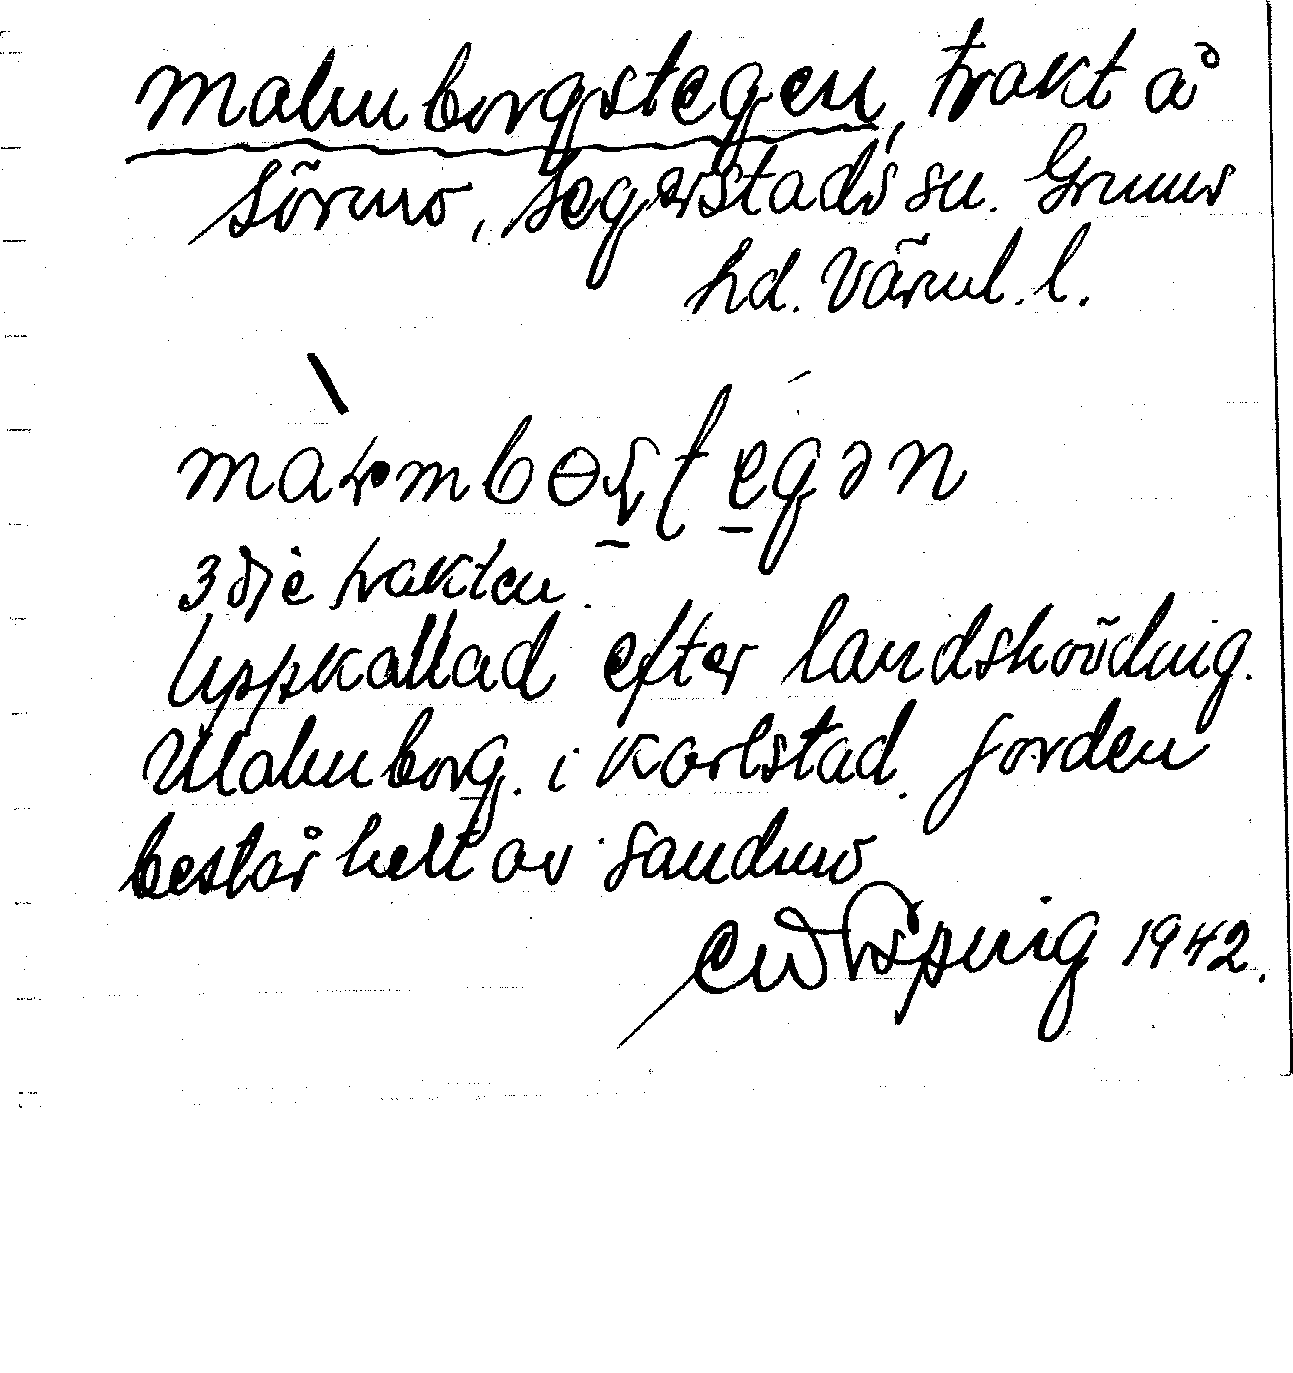 Malmborgstegen, trakt å
Sörmo, Segerstads sn. Grums
hd. Värml. l.
3dje trakten.
Uppkallad efter landshövding.
Malmborg. i Karlstad. Jorden
består helt av sandmo
1942.